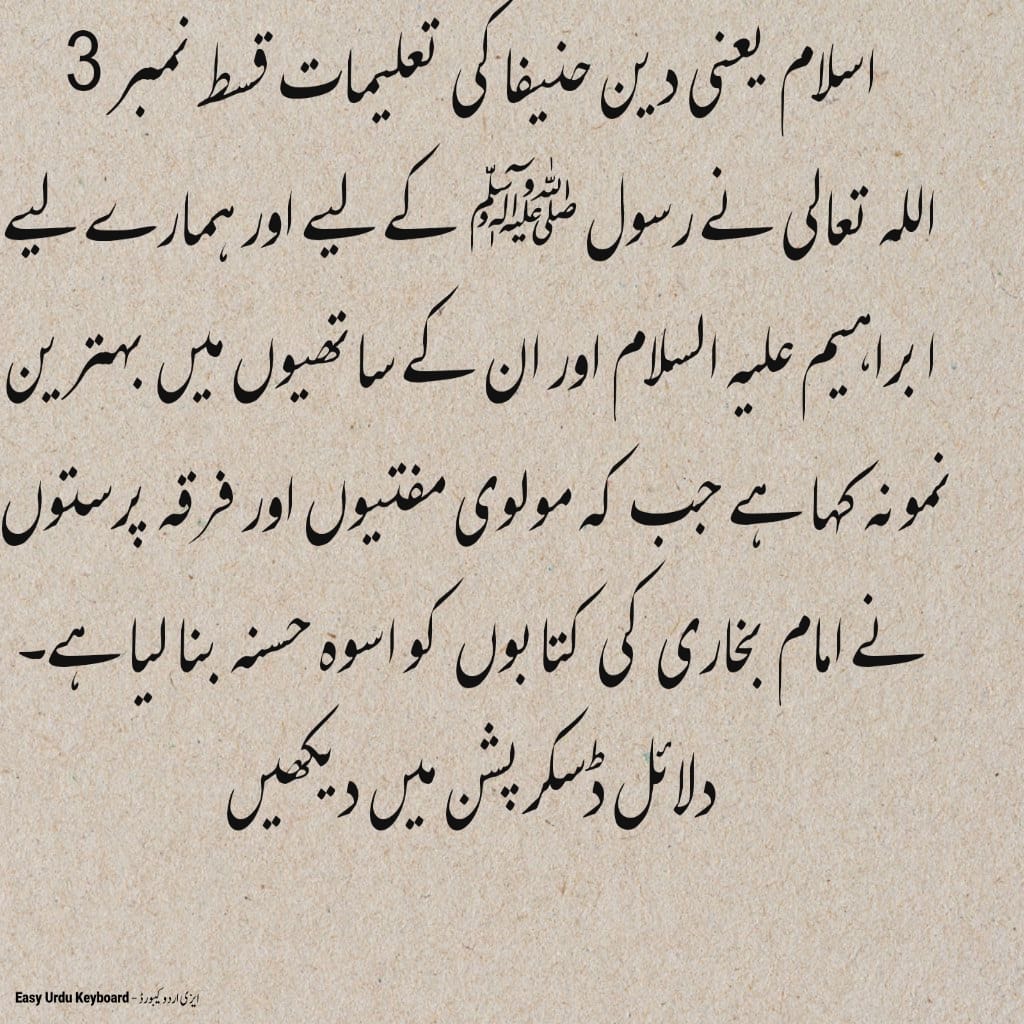 اسلام یعنی دین حنیفا کی تعلیمات قسط نمبر 3
اللہ تعالی نے رسول ﷺ کے لیے اور ہمارے لیے
ابراہیم علیہ السلام اور ان کے ساتھیوں میں بہترین
نمونہ کہا ہے جب کہ مولوی مفتیوں اور فرقہ پرستوں
نے امام بخاری کی کتابوں کو اسوہ حسنہ بنا لیا ہے۔
دلائل ڈسکرپشن میں دیکھیں
Easy Urdu Keyboard - ایزی اردو کیبورڈ